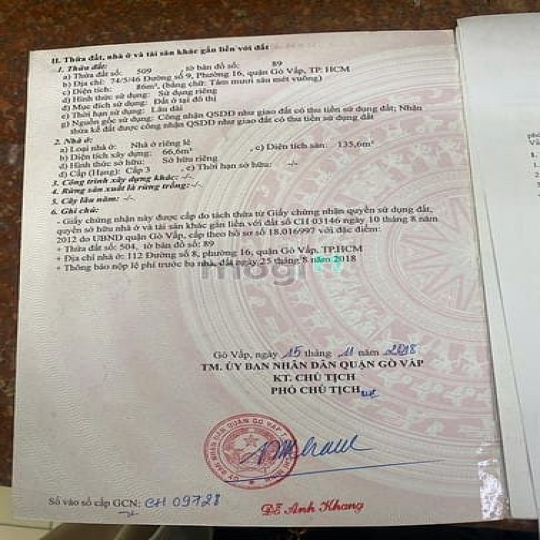 II. Thửa đất, nhà ở và tài sản khác gắn liền với đất
1. Thửa đất:
a) Thửa đất số: 509 , tờ bản đồ số: 89
b) Địa chỉ: 74/5/46 Đường số 9, Phường 16, quận Gò Vấp, TP. HCM
c) Diện tích: 86m², (bằng chữ: Tám mươi sáu mét vuông)
d) Hình thức sử dụng: Sử dụng riêng
đ) Mục đích sử dụng: Đất ở tại đô thị
e) Thời hạn sử dụng: Lâu dài
g) Nguồn gốc sử dụng: Công nhận QSDĐ như giao đất có thu tiền sử dụng đất; Nhận
thừa kế đất được công nhận QSDĐ như giao đất có thu tiền sử dụng đất
2. Nhà ở:
a) Loại nhà ở: Nhà ở riêng lẻ
b) Diện tích xây dựng: 66,6m² , c) Diện tích sàn: 135,6m²
d) Hình thức sở hữu: Sở hữu riêng
đ) Cấp (Hạng): Cấp 3 , e) Thời hạn sở hữu: -/-
3. Công trình xây dựng khác: -/-
4. Rừng sản xuất là rừng trồng: -/-
5. Cây lâu năm: -/-
6. Ghi chú:
- Giấy chứng nhận này được cấp do tách thửa từ Giấy chứng nhận quyền sử dụng đất,
quyền sở hữu nhà ở và tài sản khác gắn liền với đất số CH 03146 ngày 10 tháng 8 năm
2012 do UBND quận Gò Vấp, cấp theo hồ sơ số 18.016997 với đặc điểm:
+ Thửa đất số: 504, tờ bản đồ số: 89
+ Địa chỉ nhà ở: 112 Đường số 8, phường 16, quận Gò Vấp, TP.HCM
+ Thông báo nộp lệ phí trước bạ nhà, đất ngày 25 tháng 8 năm 2018
mogi
Gò Vấp, ngày 15 tháng 11 năm 2018
TM. ỦY BAN NHÂN DÂN QUẬN GÒ VẤP
KT. CHỦ TỊCH
PHÓ CHỦ TỊCH
ỦY BAN NHÂN DÂN QUẬN GÒ VẤP
Số vào sổ cấp GCN: CH 09728
Đỗ Anh Khang